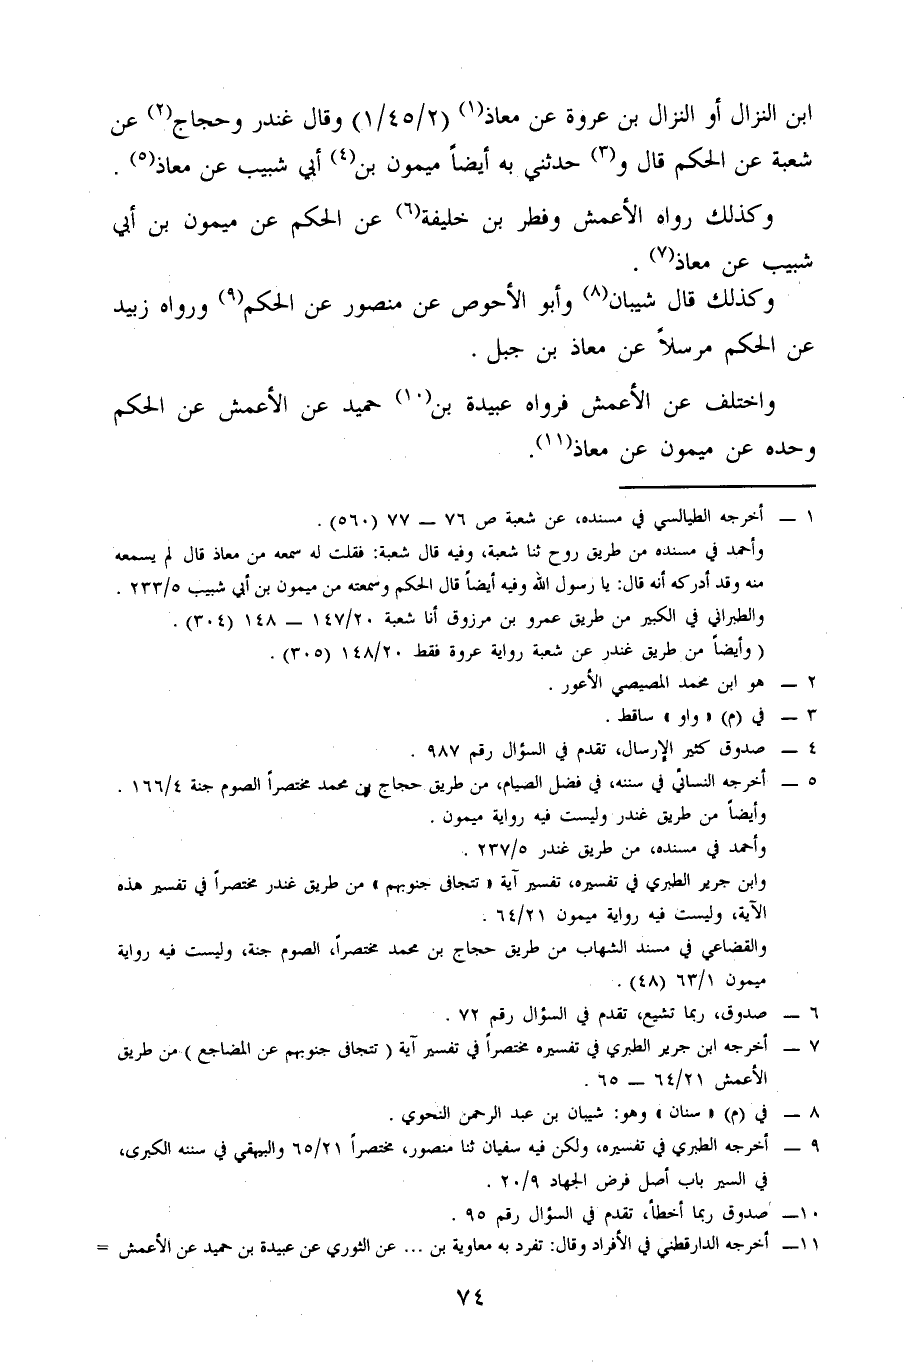 ابن النزال أو النزال بن عروة عن معاذ(١) (١/٤٥/٢) وقال غندر وحجاج(٢) عن
شعبة عن الحكم قال و(٣) حدثني به أيضاً ميمون بن(٤) أبي شبيب عن معاذ(٥) .
وكذلك رواه الأعمش وفطر بن خليفة(٦) عن الحكم عن ميمون بن أبي
شبيب عن معاذ(٧) .
وكذلك قال شيبان(٨) وأبو الأحوص عن منصور عن الحكم(٩) ورواه زبيد
عن الحكم مرسلاً عن معاذ بن جبل .
واختلف عن الأعمش فرواه عبيدة بن(١٠) حميد عن الأعمش عن الحكم
وحده عن ميمون عن معاذ(١١).
١ ــ أخرجه الطيالسي في مسنده، عن شعبة ص ٧٦ ــ ٧٧ (٥٦٠) .
وأحمد في مسنده من طريق روح ثنا شعبة، وفيه قال شعبة: فقلت له سمعه من معاذ قال لم يسمعه
منه وقد أدركه أنه قال: يا رسول الله وفيه أيضاً قال الحكم وسمعته من ميمون بن أبي شبيب ٢٣٣/٥ .
والطبراني في الكبير من طريق عمرو بن مرزوق أنا شعبة ١٤٧/٢٠ ــ ١٤٨ (٣٠٤) .
( وأيضاً من طريق غندر عن شعبة رواية عروة فقط ١٤٨/٢٠ (٣٠٥) .
٢ ــ هو ابن محمد المصيصي الأعور .
٣ ــ في (م) « واو » ساقط .
٤ ــ صدوق كثير الإرسال، تقدم في السؤال رقم ٩٨٧ .
٥ ــ أخرجه النسائي في سننه، في فضل الصيام، من طريق حجاج بن محمد مختصراً الصوم جنة ١٦٦/٤ .
وأيضاً من طريق غندر وليست فيه رواية ميمون .
وأحمد في مسنده، من طريق غندر ٢٣٧/٥ .
وابن جرير الطبري في تفسيره، تفسير آية « تتجافى جنوبهم » من طريق غندر مختصراً في تفسير هذه
الآية، وليست فيه رواية ميمون ٦٤/٢١ .
والقضاعي في مسند الشهاب من طريق حجاج بن محمد مختصراً، الصوم جنة، وليست فيه رواية
ميمون ٦٣/١ (٤٨) .
٦ ــ صدوق، ربما تشيع، تقدم في السؤال رقم ٧٢ .
٧ ــ أخرجه ابن جرير الطبري في تفسيره مختصراً في تفسير آية ( تتجافى جنوبهم عن المضاجع ) من طريق
الأعمش ٦٤/٢١ ــ ٦٥ .
٨ ــ في (م) « سنان » وهو: شيبان بن عبد الرحمن النحوي .
٩ ــ أخرجه الطبري في تفسيره، ولكن فيه سفيان ثنا منصور، مختصراً ٦٥/٢١ والبيهقي في سننه الكبرى،
في السير باب أصل فرض الجهاد ٢٠/٩ .
١٠ــ صدوق ربما أخطأ، تقدم في السؤال رقم ٩٥ .
١١ــ أخرجه الدارقطني في الأفراد وقال: تفرد به معاوية بن ... عن الثوري عن عبيدة بن حميد عن الأعمش =
٧٤